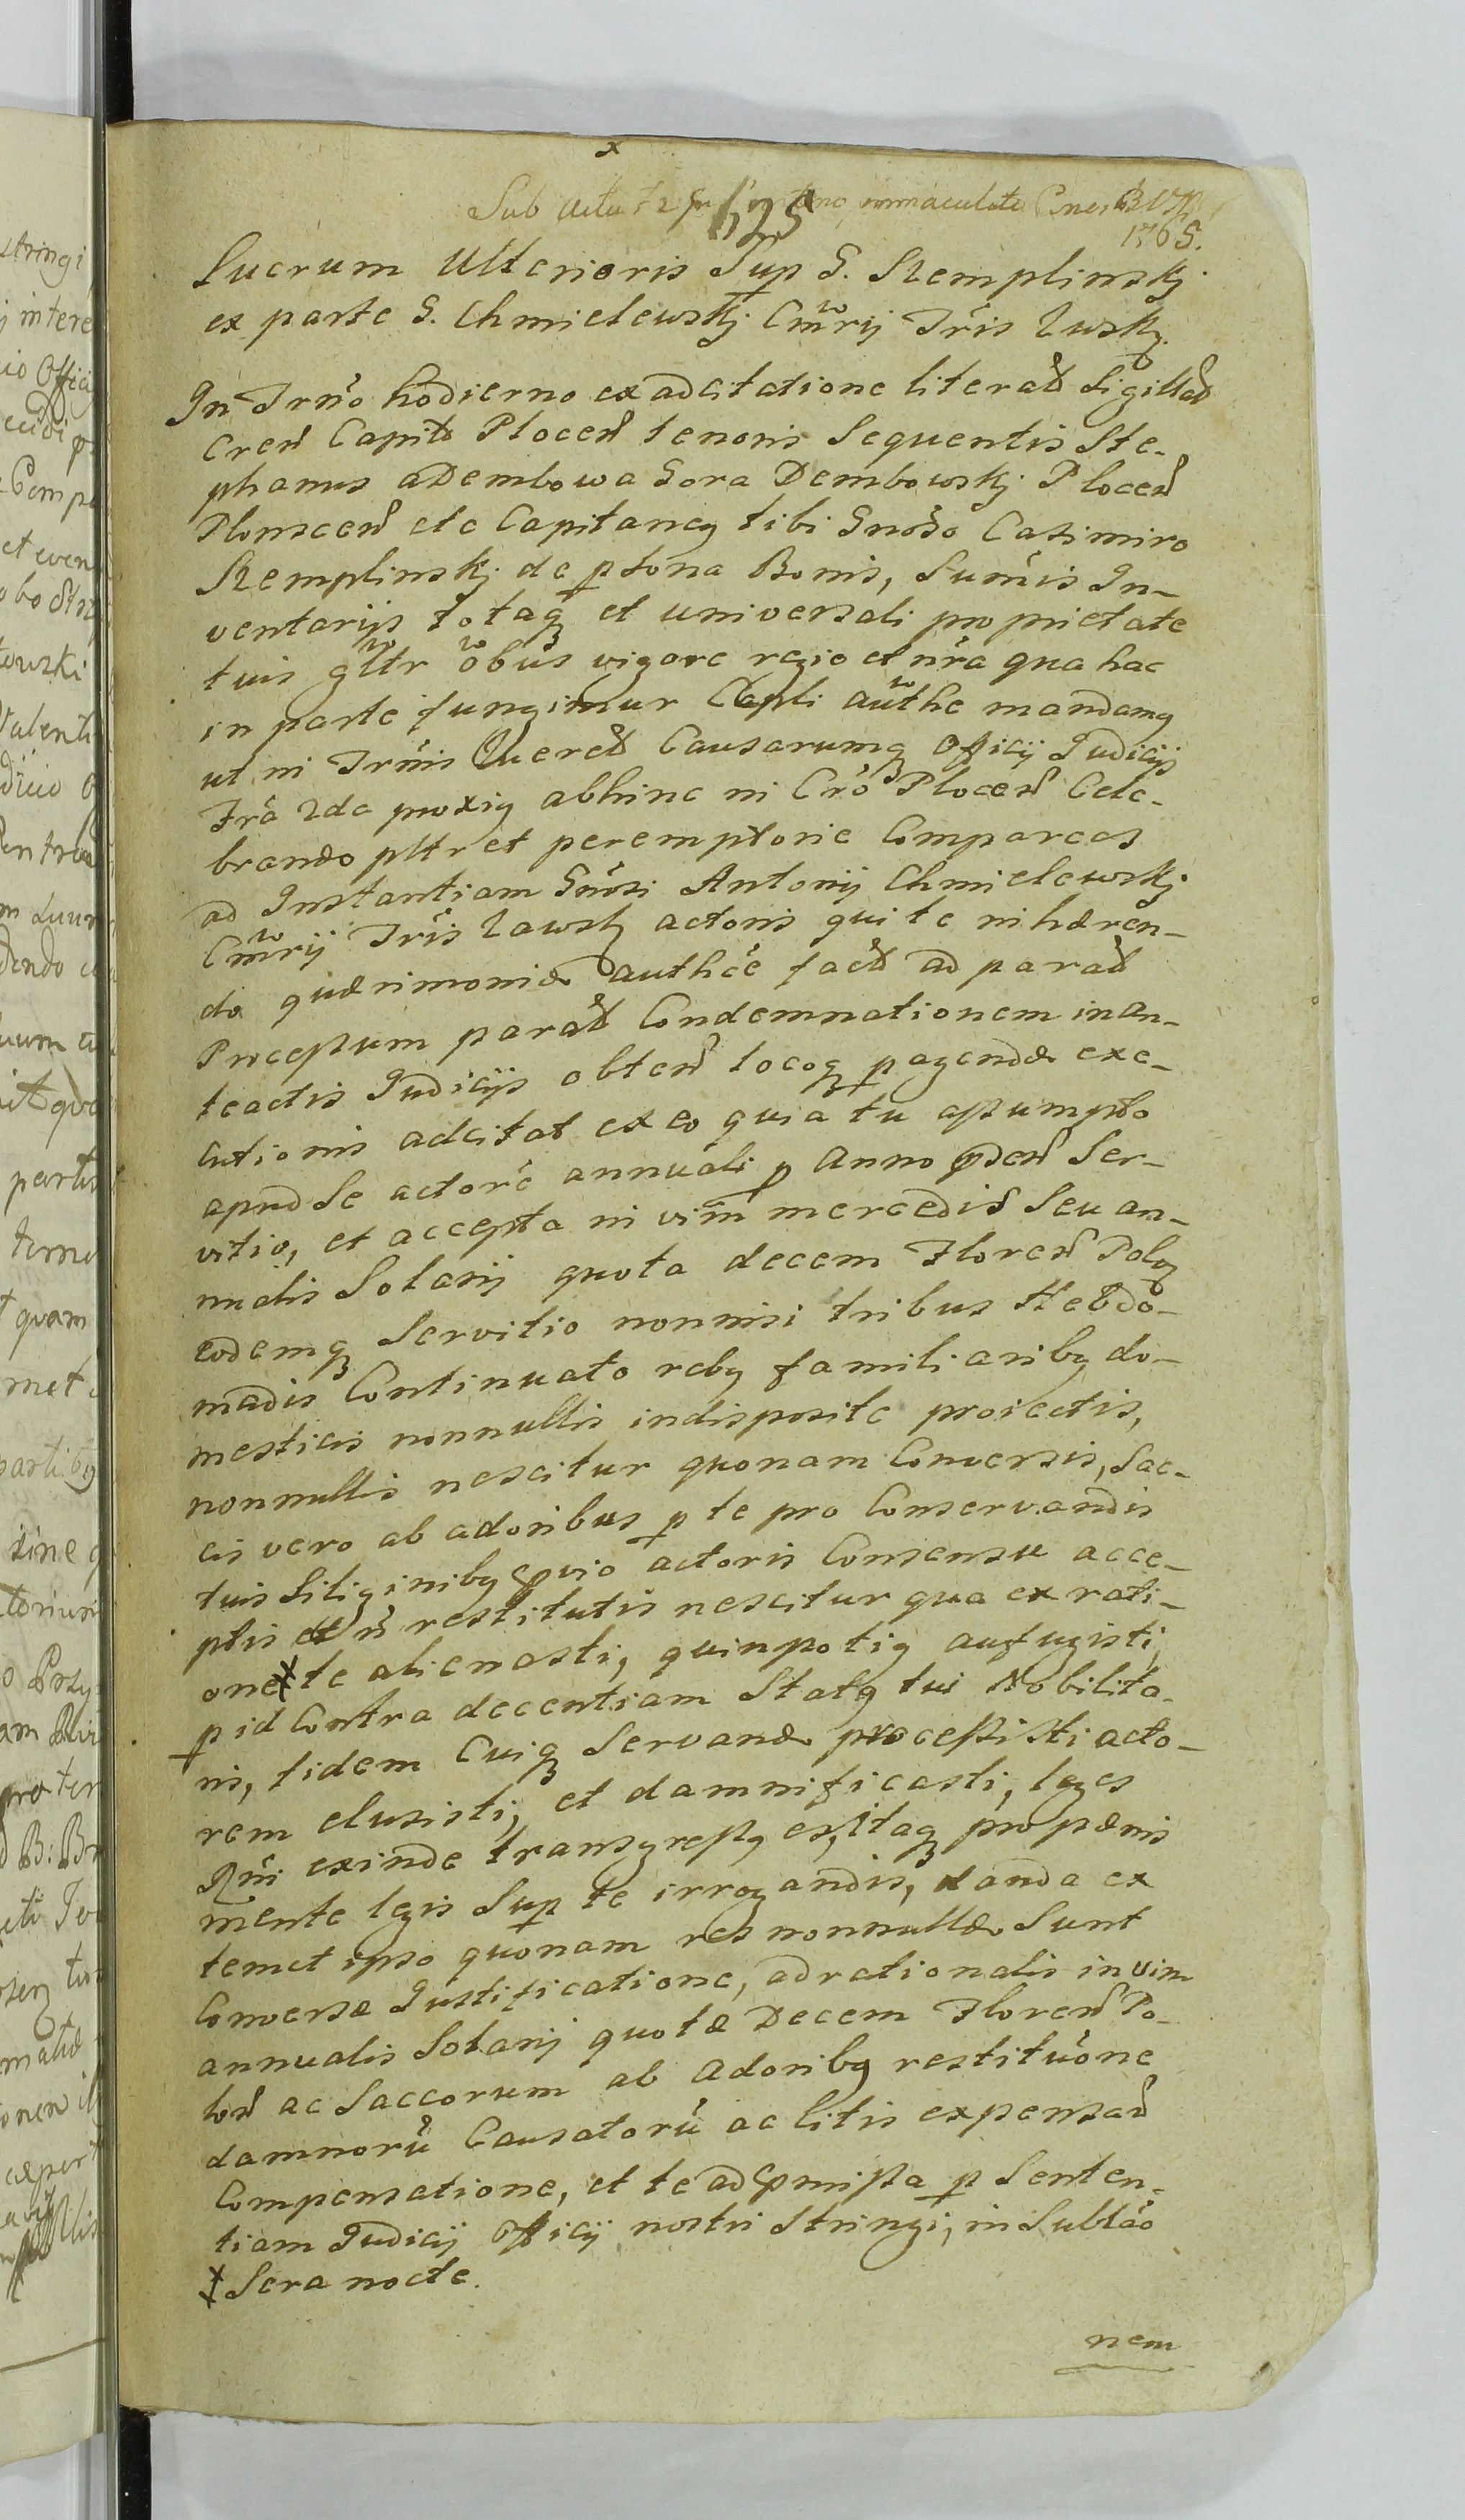 x
Sub Actu f 2 immaculatæ Cnes BVM
525
1765.
Lucrum Ulterioris Sup G. Stemplinskj
ex parte G. Chmielewskj Cmrij Tris Zwsk.
In Trno hodierno ex adcitatione literar Sigillat
Cren Capit Plocen tenoris Sequentis Ste-
phanus a Dembowa Gora Dembowskj Plocen
Plonscen etc Capitaneq tibi Gnoso Casimiro
Stemplinskj de psona Bonis, Sumis In-
ventarijs totaq et universali proprietate
tuis gltr obus vigore regio et nra qua hac
in parte fungimur Capli authe mandamq
ut in Trnis Querel Causarumq Officij Judicijs
Fra 2da proxiq abhinc in Cro Plocen Cele-
brando pltr et peremptorie Compareas
ad Instantiam Gnosi Antonij Chmielewskj
Cmrij Tris Zawsk actoris qui te inhæren-
do quærimoniæ authce fact ad parat
Præceptum parat Condemnationem in an-
teactis Judicijs obten locoq pagendæ exe-
cutionis adcitat ex eo quia tu assumpto
apud Se actore annuali p Anno pden Ser-
vitio, et accepta in vim mercedis Seu an-
nualis Solarij quota decem Floren Polq
eodemq Servitio nonnisi tribus Hebdo-
madis Continuato rebq familiaribq do-
mesticis nonnullis indisposite proiectis,
nonnullis nescitur quonam Conversis, Sac-
cis vero ab adoribus p te pro Conservandis
tuis Siliginibq pvio actoris Consensu acce-
ptis et n restitutis nescitur qua ex rati-
one x te alienasti, quinpotiq aufugisti,
p id Contra decentiam Statq tui Nobilita-
ris, fidem Cuiq Servandæ processisti acto-
rem elusisti, et damnificasti, leges
Rni exinde transgressq es, Itaq pro pænis
mente legis Sup te irrogandis, danda ex
temet ipso quonam res nonnullæ Sunt
Conversæ Justificatione, ad rationalis in vim
annualis Solarij quotæ Decem Floren Po-
lon ac Saccorum ab Adoribq restituone
damnoru Causatoru ac litis expensar
Compensatione, et te ad pmissa p Senten-
tiam Judicij Officij nostri Stringi, in Sublao
x Sera nocte.
nem